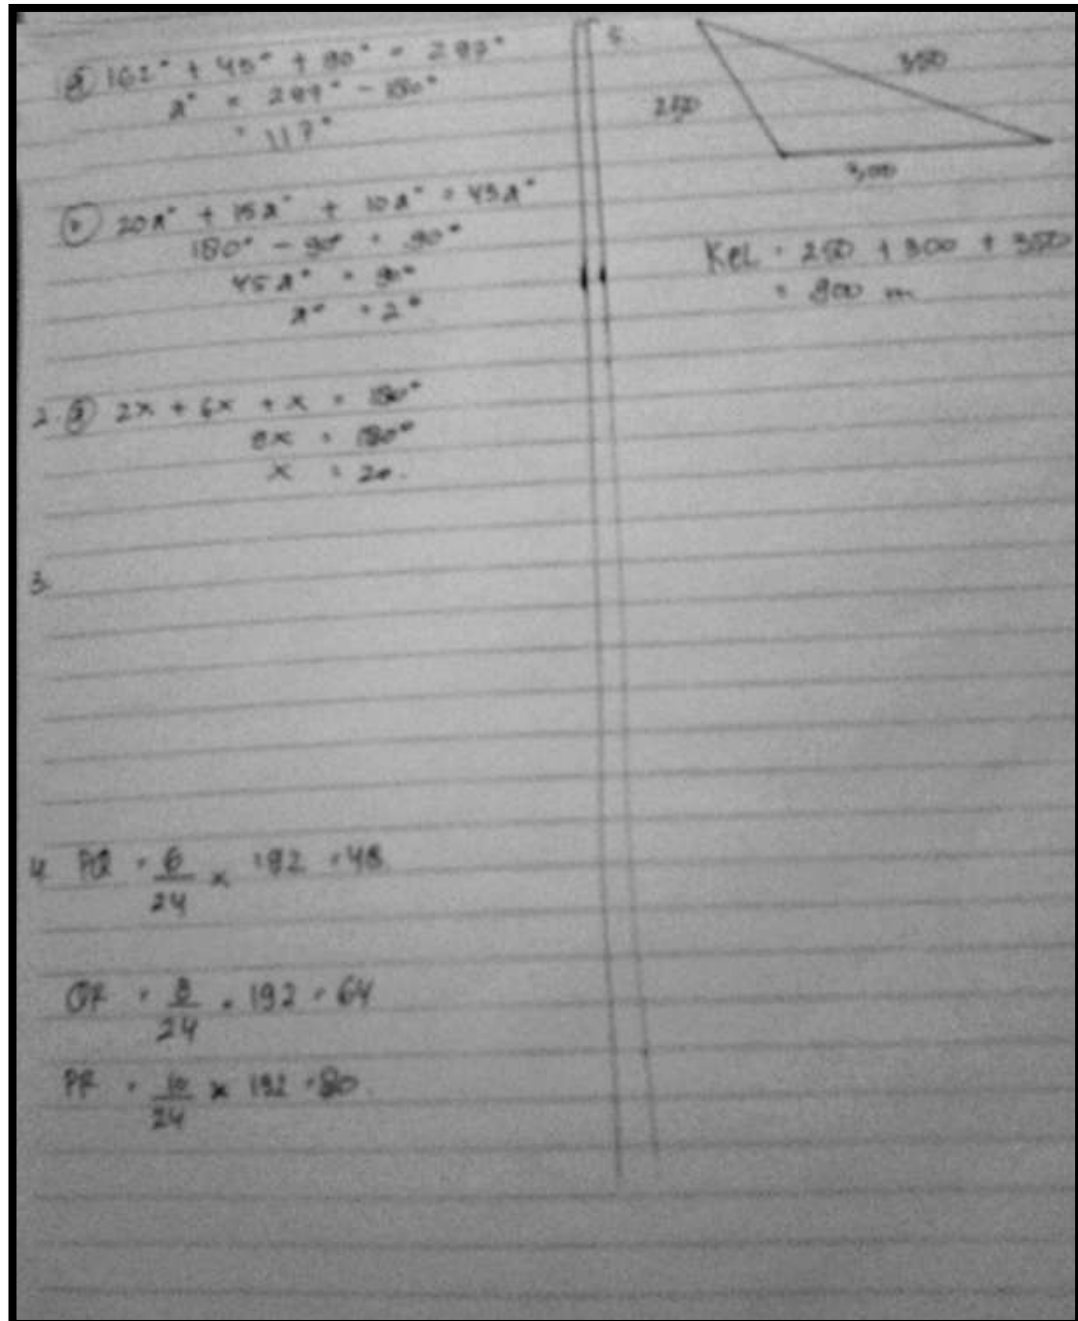 ⓐ 162° + 45° + 90° = 297°
a° = 297° - 180°
= 117°
20a° + 15a° + 10a° = 45a°
180° - 90° = 90°
45a° = 90°
a° = 2°
2. ⓐ 2x + 6x + x = 180°
9x = 180°
x = 20.
3.
4. PQ = 6/24 x 192 = 48.
QR = 8/24 x 192 = 64
PR = 10/24 x 192 = 80
5.
350
250
300
Kel = 250 + 300 + 350
= 900 m